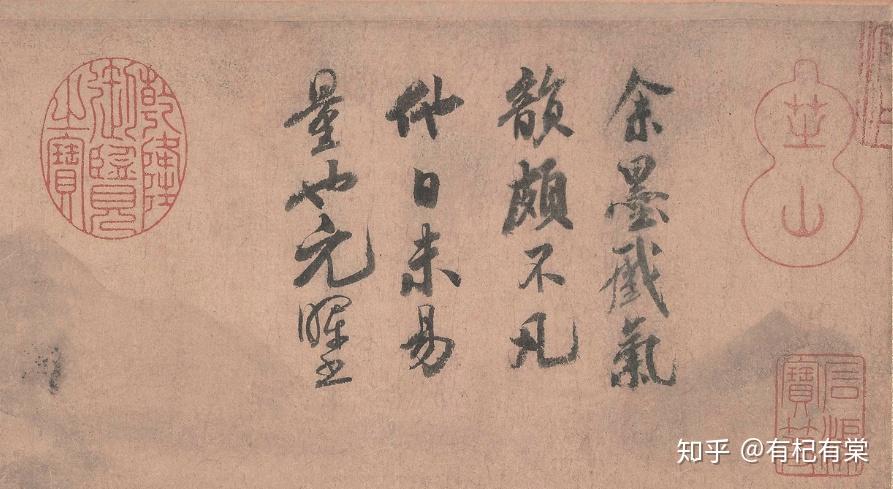 余墨戲氣
韻頗不凡
他日未易
量也元暉書
乾隆御覽之寶
知乎 @有杞有棠